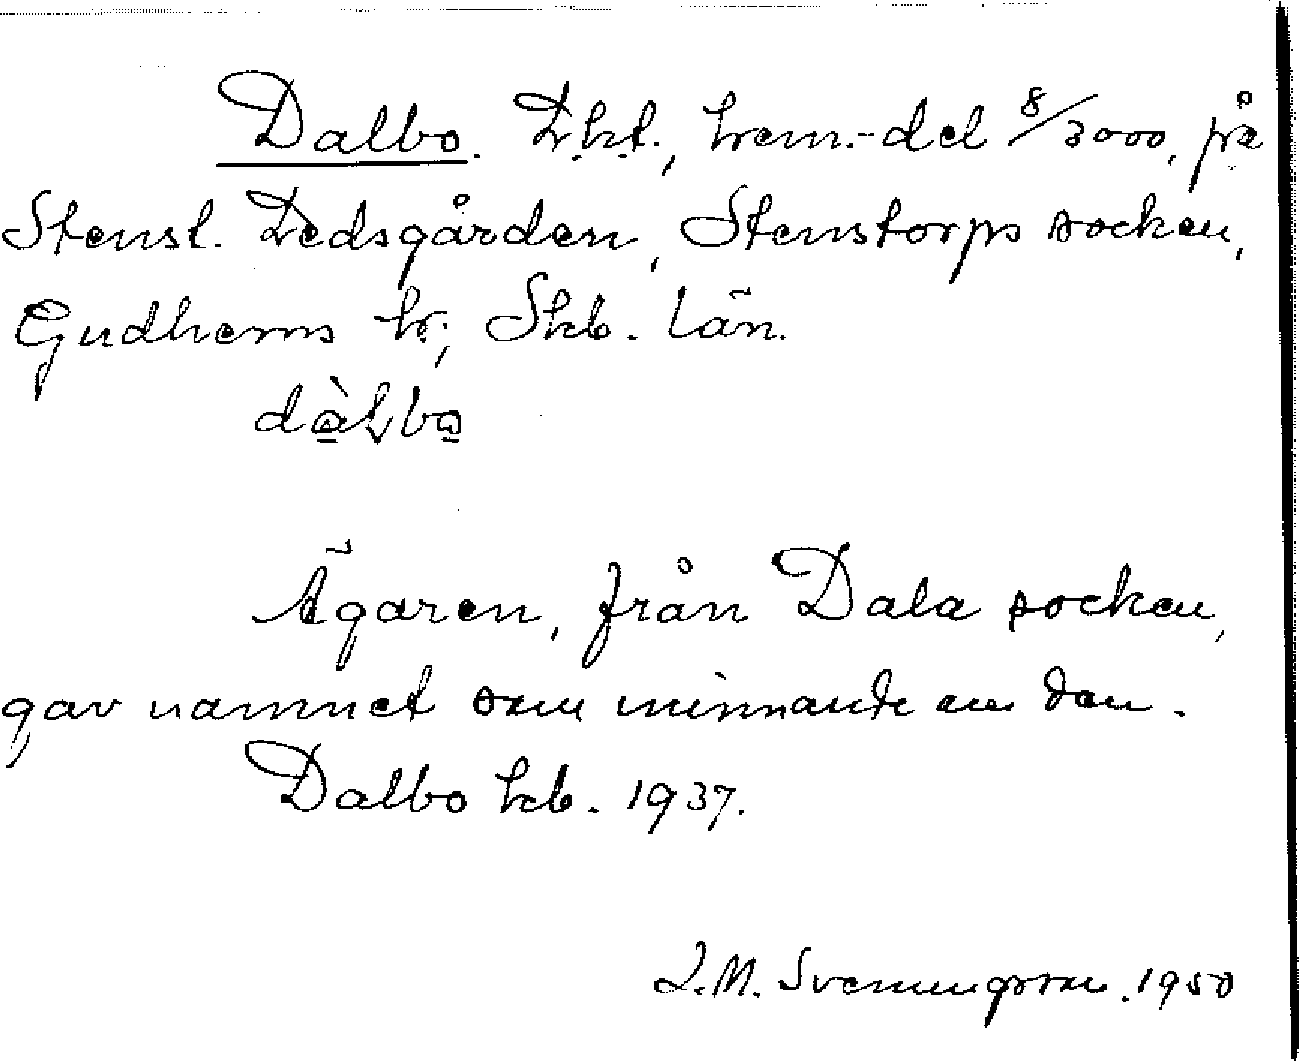 Dalbo. Lht., hem.-del 8/3000, på
Stensl. Dedsgården, Stenstorps socken,
Gudhems hr; Skb. län.
dàlbo
Ägaren, från Dala socken,
gav namnet som minnande om den.
Dalbo kb. 1937.
J.M. Svenningsson. 1950